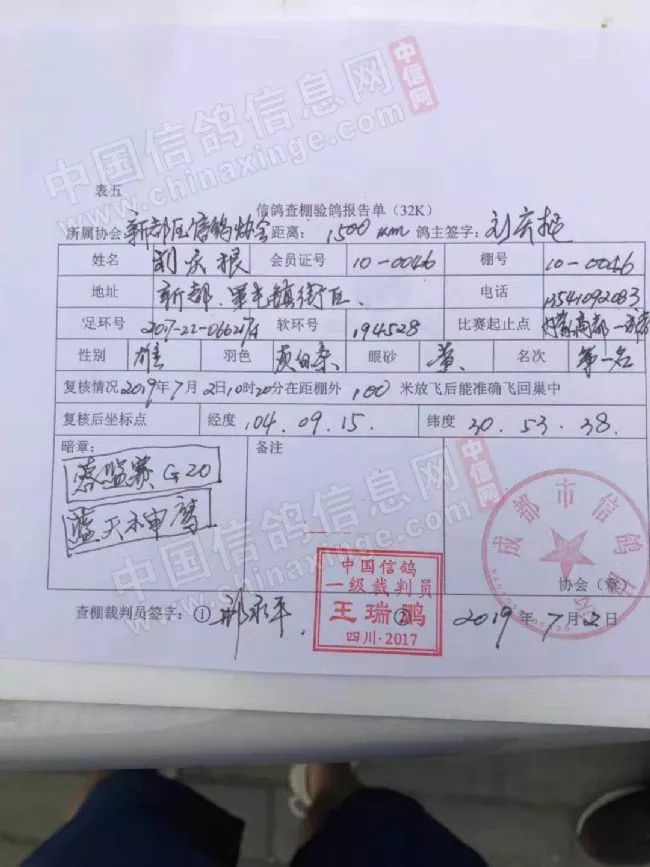 中国信鸽信息网
www.chinaxinge.com
中信网
表五
信鸽查棚验鸽报告单（32K）
所属协会：新都区信鸽协会 距离：1500 km 鸽主签字：刘庆根
姓名 刘庆根 会员证号 10-0046 棚号 10-0046
地址 新都 镇街区 电话 13541092083
足环号 2017-22-066217 软环号 194528 比赛起止点 商都
性别 雄 羽色 灰白条 眼砂 黄 名次 第一名
复核情况 2019年7月2日10时20分在距棚外 100 米放飞后能准确飞回巢中
复核后坐标点 经度 104.09.15. 纬度 30.53.38.
暗章：
赛 G20
蓝天
备注
成都市信鸽协会
协会（章）
中国信鸽
一级裁判员
王瑞鹏
四川·2017
查棚裁判员签字：① 邢永平 ② 2019年7月2日
中国信鸽信息网
www.chinaxinge.com
中信网